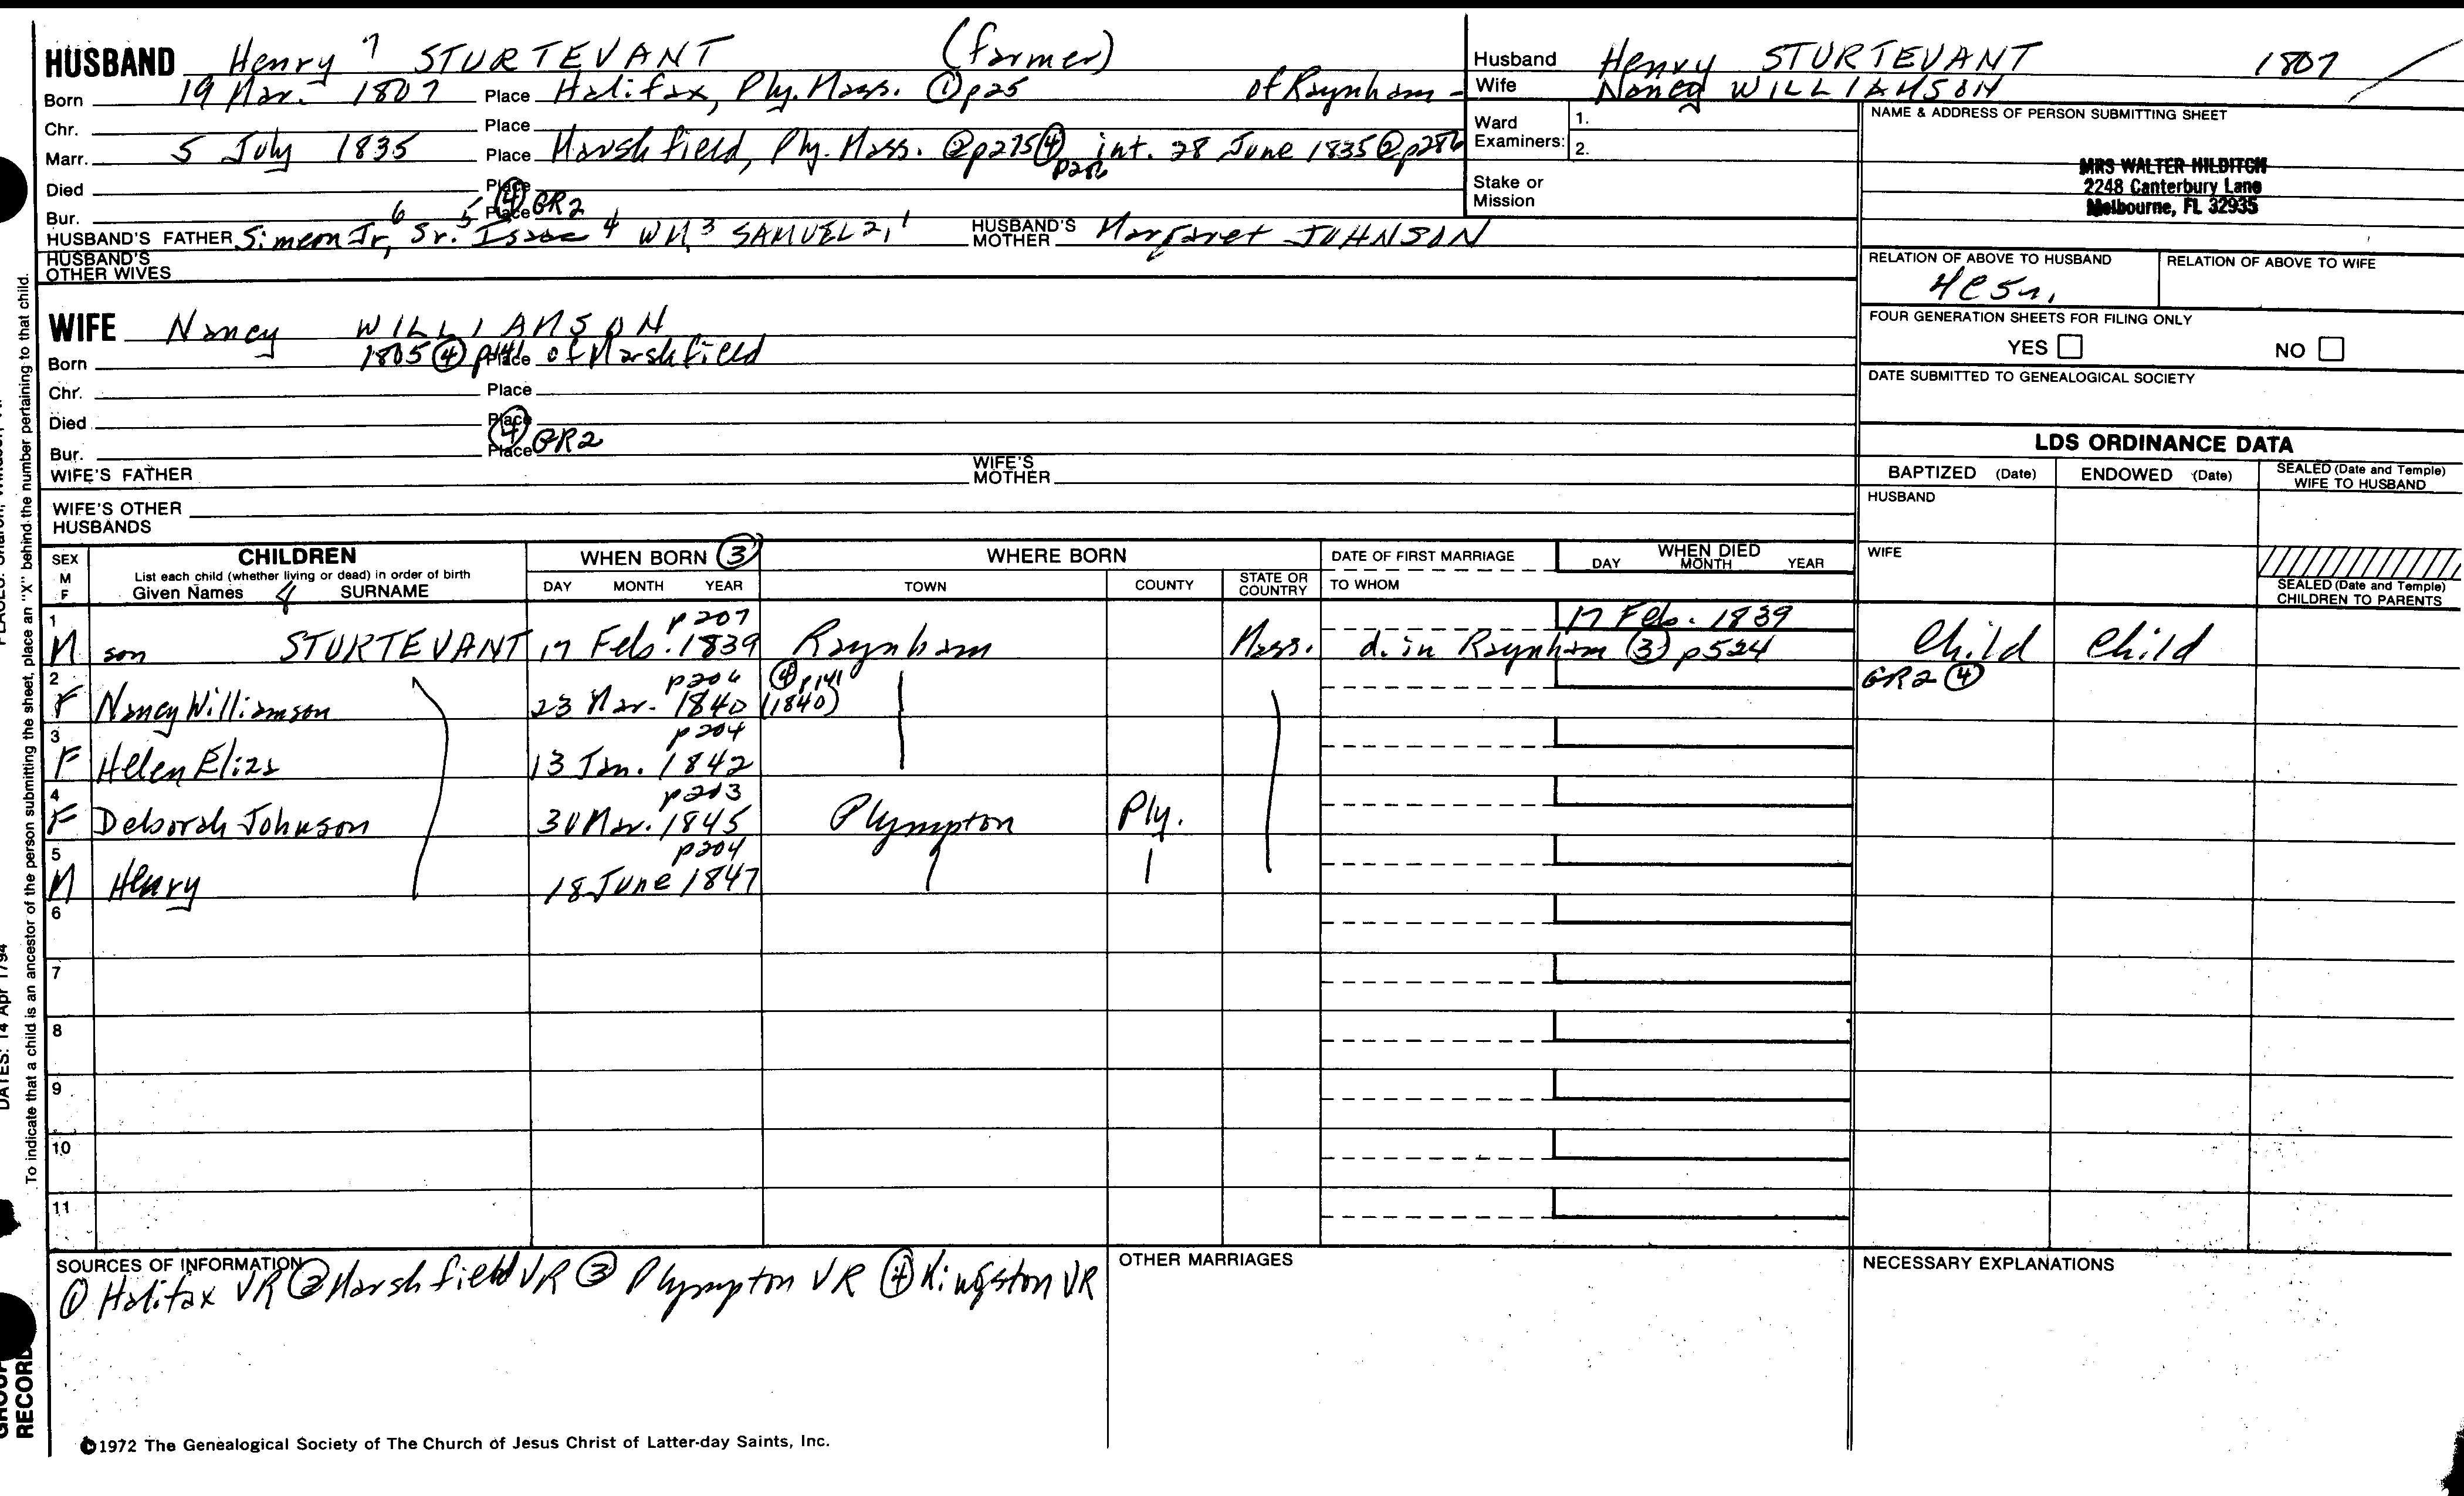 HUSBAND Henry 7 STURTEVANT (farmer)
Born 19 Mar. 1807 Place Halifax, Ply. Mass. ① p25 of Raynham -
Chr. Place
Marr. 5 July 1835 Place Marshfield, Ply. Mass. ② p275 ④ p286 int. 28 June 1835 ② p286
Died Place
Bur. Place ④ GR2
HUSBAND'S FATHER Simeon Jr, 6 Sr. 5 Isaac 4 WM, 3 SAMUEL 2, 1 HUSBAND'S MOTHER Margaret JOHNSON
HUSBAND'S OTHER WIVES
Husband Henry STURTEVANT 1807
Wife Nancy WILLIAMSON
Ward Examiners: 1.
2.
Stake or Mission
NAME & ADDRESS OF PERSON SUBMITTING SHEET
MRS WALTER HILDITCH
2248 Canterbury Lane
Melbourne, FL 32935
RELATION OF ABOVE TO HUSBAND RELATION OF ABOVE TO WIFE
4C5r.
FOUR GENERATION SHEETS FOR FILING ONLY
YES NO
DATE SUBMITTED TO GENEALOGICAL SOCIETY
WIFE Nancy WILLIAMSON
Born 1805 ④ p141 Place of Marshfield
Chr. Place
Died Place
Bur. Place ④ GR2
WIFE'S FATHER WIFE'S MOTHER
WIFE'S OTHER HUSBANDS
LDS ORDINANCE DATA
BAPTIZED (Date) ENDOWED (Date) SEALED (Date and Temple) WIFE TO HUSBAND
HUSBAND
WIFE
SEALED (Date and Temple) CHILDREN TO PARENTS
SEX M F CHILDREN WHEN BORN ③ WHERE BORN DATE OF FIRST MARRIAGE WHEN DIED
List each child (whether living or dead) in order of birth
Given Names 8 SURNAME DAY MONTH YEAR TOWN COUNTY STATE OR COUNTRY TO WHOM DAY MONTH YEAR
1 p207 17 Feb. 1839
M son STURTEVANT 17 Feb. 1839 Raynham Mass. d. in Raynham ③ p524 Child Child
2 p206 ④ p141 GR2 ④
F Nancy Williamson 23 Mar. 1840 (1840)
3 p204
F Helen Eliza 13 Jan. 1842
4 p203
F Deborah Johnson 30 Mar. 1845 Plympton Ply.
5 p204
M Henry 18 June 1847
6
7
8
9
10
11
SOURCES OF INFORMATION
① Halifax VR ② Marshfield VR ③ Plympton VR ④ Kingston VR
OTHER MARRIAGES
NECESSARY EXPLANATIONS
©1972 The Genealogical Society of The Church of Jesus Christ of Latter-day Saints, Inc.
To indicate that a child is an ancestor of the person submitting the sheet, place an "X" behind the number pertaining to that child.
DATES: 14 Apr 1794
GROUP
RECORD